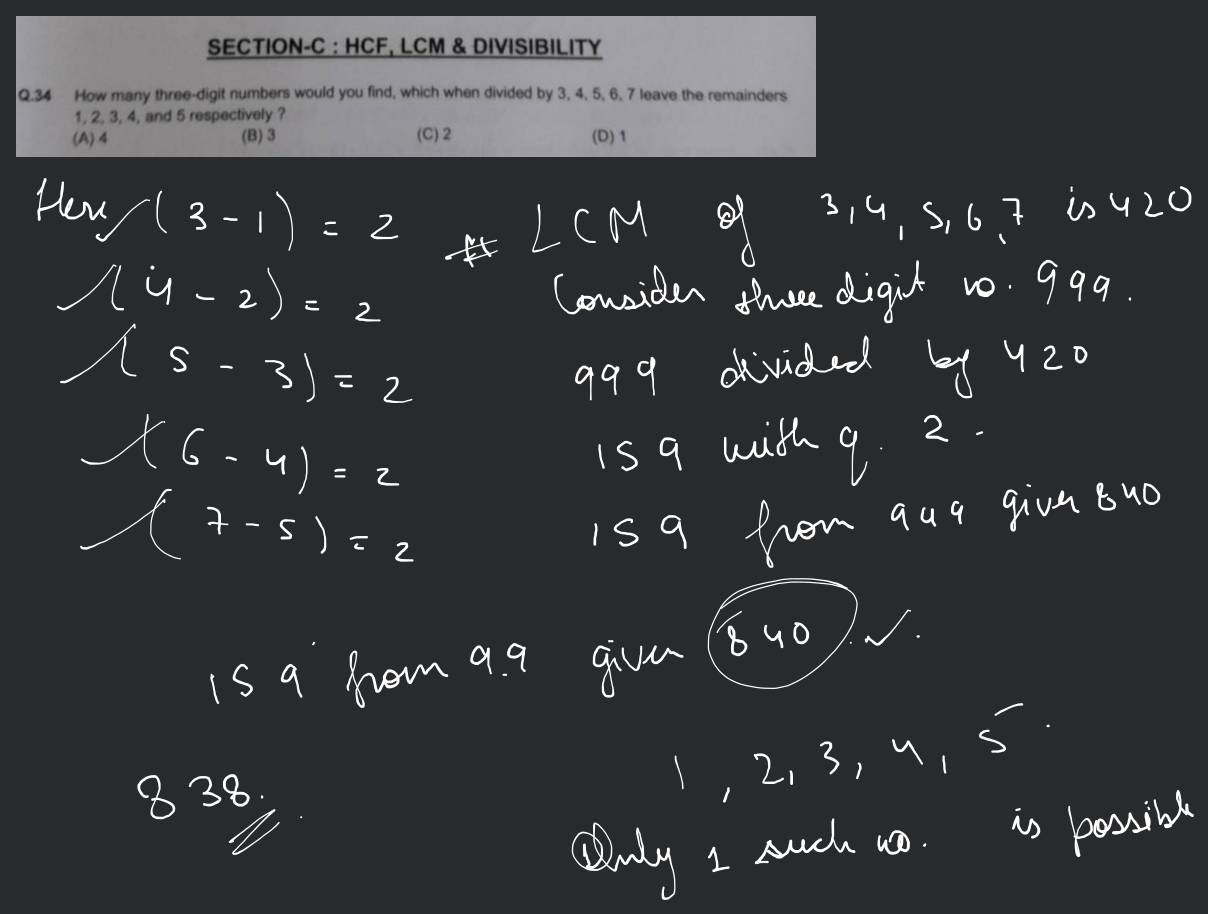 SECTION-C : HCF, LCM & DIVISIBILITY
Q.34 How many three-digit numbers would you find, which when divided by 3, 4, 5, 6, 7 leave the remainders
1, 2, 3, 4, and 5 respectively ?
(A) 4 (B) 3 (C) 2 (D) 1
Here (3-1) = 2
(4-2) = 2
(5-3) = 2
(6-4) = 2
(7-5) = 2
# LCM of 3,4,5,6,7 is 420
Consider three digit no. 999.
999 divided by 420
159 with q. 2.
159 from 999 given 840
159 from 9.9 given 840
838.
1, 2, 3, 4, 5.
Only 1 such no. is possible